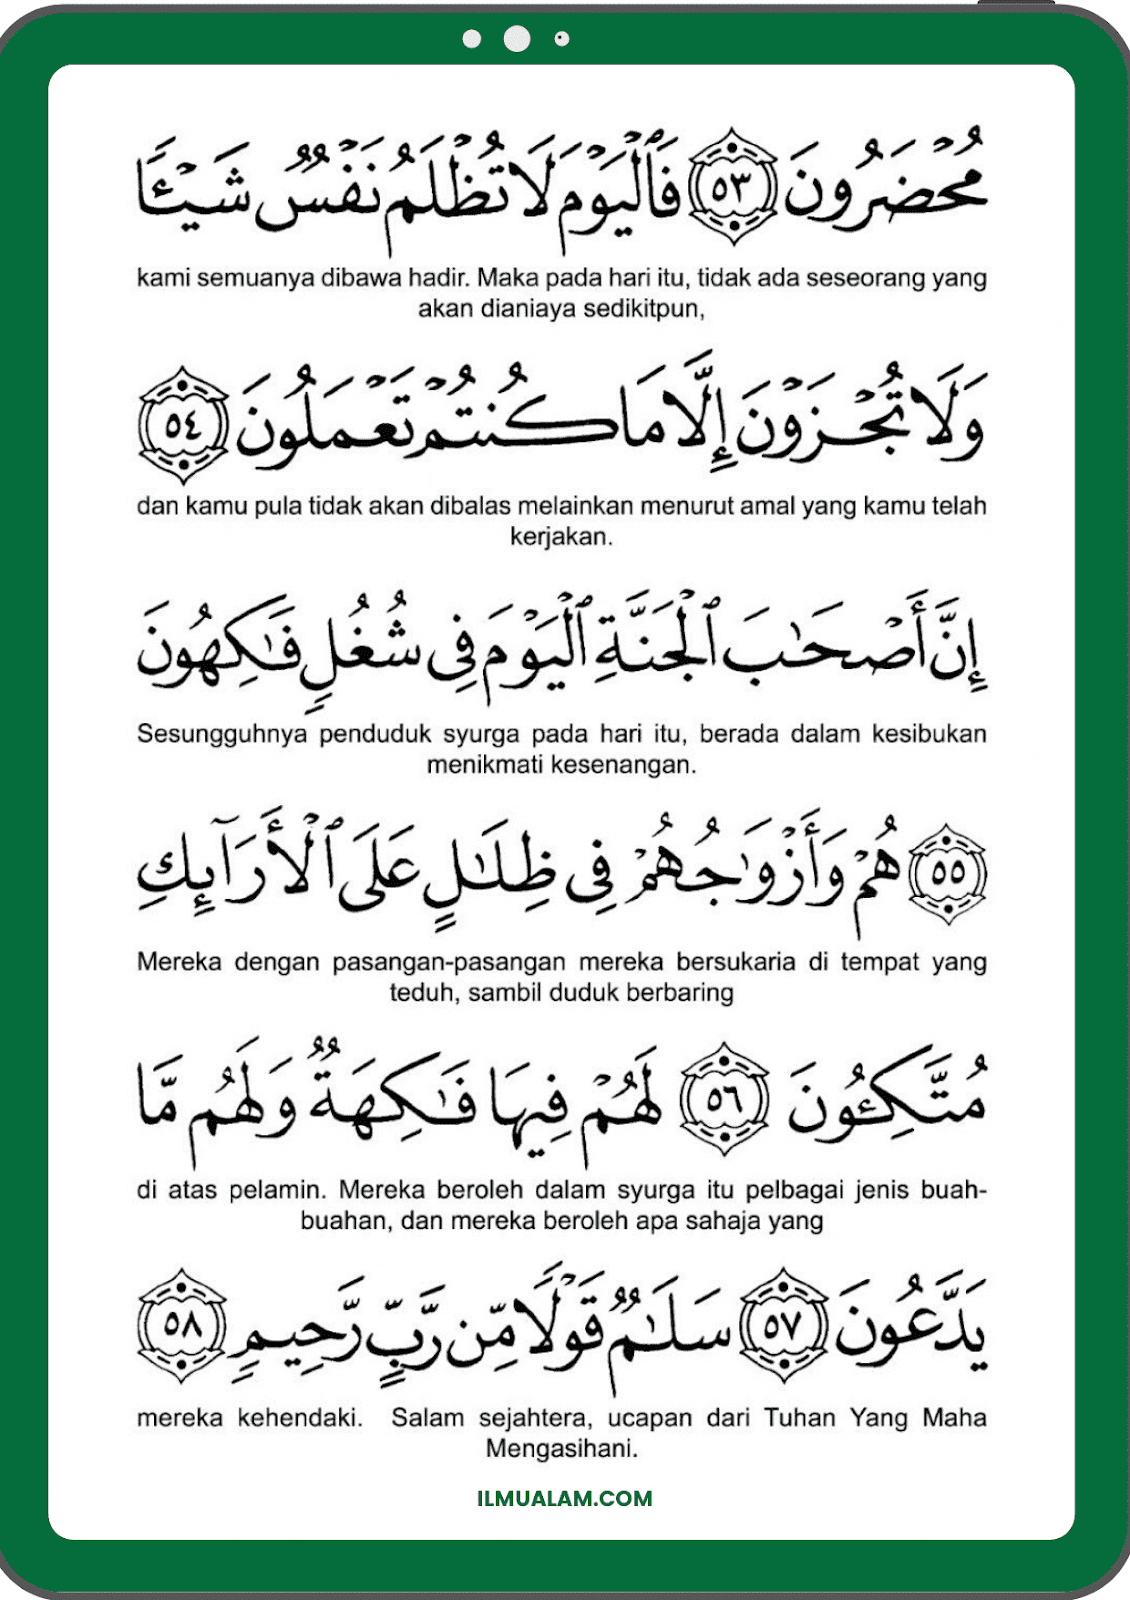 مُحۡضَرُونَ ٥٣ فَٱلۡيَوۡمَ لَا تُظۡلَمُ نَفۡسٌ شَيۡـًٔا
kami semuanya dibawa hadir. Maka pada hari itu, tidak ada seseorang yang
akan dianiaya sedikitpun,
وَلَا تُجۡزَوۡنَ إِلَّا مَا كُنتُمۡ تَعۡمَلُونَ ٥٤
dan kamu pula tidak akan dibalas melainkan menurut amal yang kamu telah
kerjakan.
إِنَّ أَصۡحَٰبَ ٱلۡجَنَّةِ ٱلۡيَوۡمَ فِي شُغُلٍ فَٰكِهُونَ
Sesungguhnya penduduk syurga pada hari itu, berada dalam kesibukan
menikmati kesenangan.
٥٥ هُمۡ وَأَزۡوَٰجُهُمۡ فِي ظِلَٰلٍ عَلَى ٱلۡأَرَآئِكِ
Mereka dengan pasangan-pasangan mereka bersukaria di tempat yang
teduh, sambil duduk berbaring
مُتَّكِـُٔونَ ٥٦ لَهُمۡ فِيهَا فَٰكِهَةٌ وَلَهُم مَّا
di atas pelamin. Mereka beroleh dalam syurga itu pelbagai jenis buah-
buahan, dan mereka beroleh apa sahaja yang
يَدَّعُونَ ٥٧ سَلَٰمٌ قَوۡلًا مِّن رَّبٍّ رَّحِيمٍ ٥٨
mereka kehendaki. Salam sejahtera, ucapan dari Tuhan Yang Maha
Mengasihani.
ILMUALAM.COM